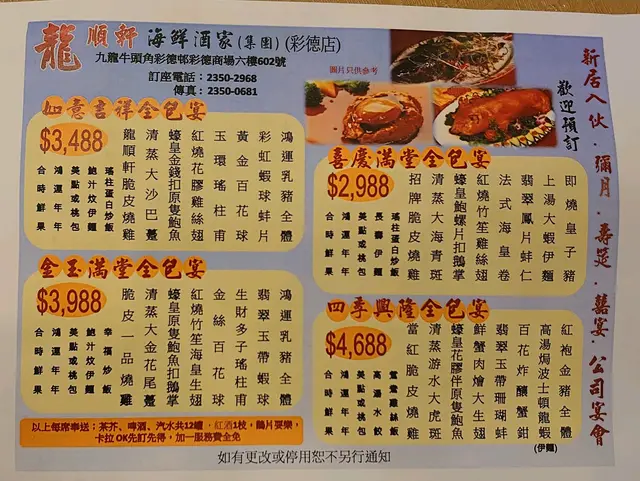 龍順軒 海鮮酒家(集團)(彩德店)
九龍牛頭角彩德邨彩德商場六樓602號
訂座電話：2350-2968
傳真：2350-0681
圖片只供參考
歡迎預訂
新居入伙．彌月．壽筵．囍宴．公司宴會
如意吉祥全包宴
$3,488
鴻運乳豬全體
彩虹蝦球蚌片
黃金百花球
玉環瑤柱甫
紅燒花膠雞絲翅
蠔皇金錢扣原隻鮑魚
清蒸大沙巴躉
龍順軒脆皮燒雞
瑤柱蛋白炒飯
鮑汁炆伊麵
美點或桃包
鴻運年年
合時鮮果
喜慶滿堂全包宴
$2,988
即燒皇子豬
上湯大蝦伊麵
翡翠鳳片蚌仁
法式海皇卷
紅燒竹笙雞絲翅
蠔皇鮑螺片扣鵝掌
清蒸大海青斑
招牌脆皮燒雞
瑤柱蛋白炒飯
長壽伊麵
美點或桃包
鴻運年年
合時鮮果
金玉滿堂全包宴
$3,988
鴻運乳豬全體
翡翠玉帶蝦球
生財多子瑤柱甫
金絲百花球
紅燒竹笙海皇生翅
蠔皇原隻鮑魚扣鵝掌
清蒸大金花尾躉
脆皮一品燒雞
幸福炒飯
鮑汁炆伊麵
美點或桃包
鴻運年年
合時鮮果
四季興隆全包宴
$4,688
紅袍金豬全體
高湯焗波士頓龍蝦(伊麵)
百花炸釀蟹鉗
翡翠玉帶珊瑚蚌
鮮蟹肉燴大生翅
蠔皇花膠伴原隻鮑魚
清蒸游水大虎斑
當紅脆皮燒雞
鴛鴦雞絲飯
高湯水餃
美點或桃包
鴻運年年
合時鮮果
以上每席奉送：茶芥、啤酒、汽水共12罐，紅酒1枝，鶴片耍樂，
卡拉OK先訂先得，加一服務費全免
如有更改或停用恕不另行通知